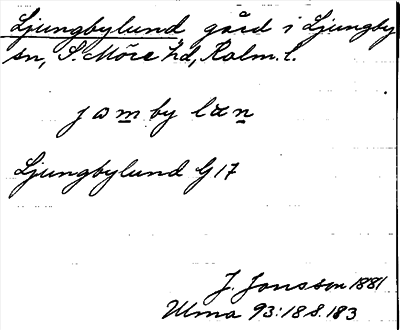 Ljungbylund, gård i Ljungby
sn, S. Möre hd, Kalm. l.
jɷm by lαn
Ljungbylund G17
J. Jonsson 1881
Ulma 93:18 S. 183